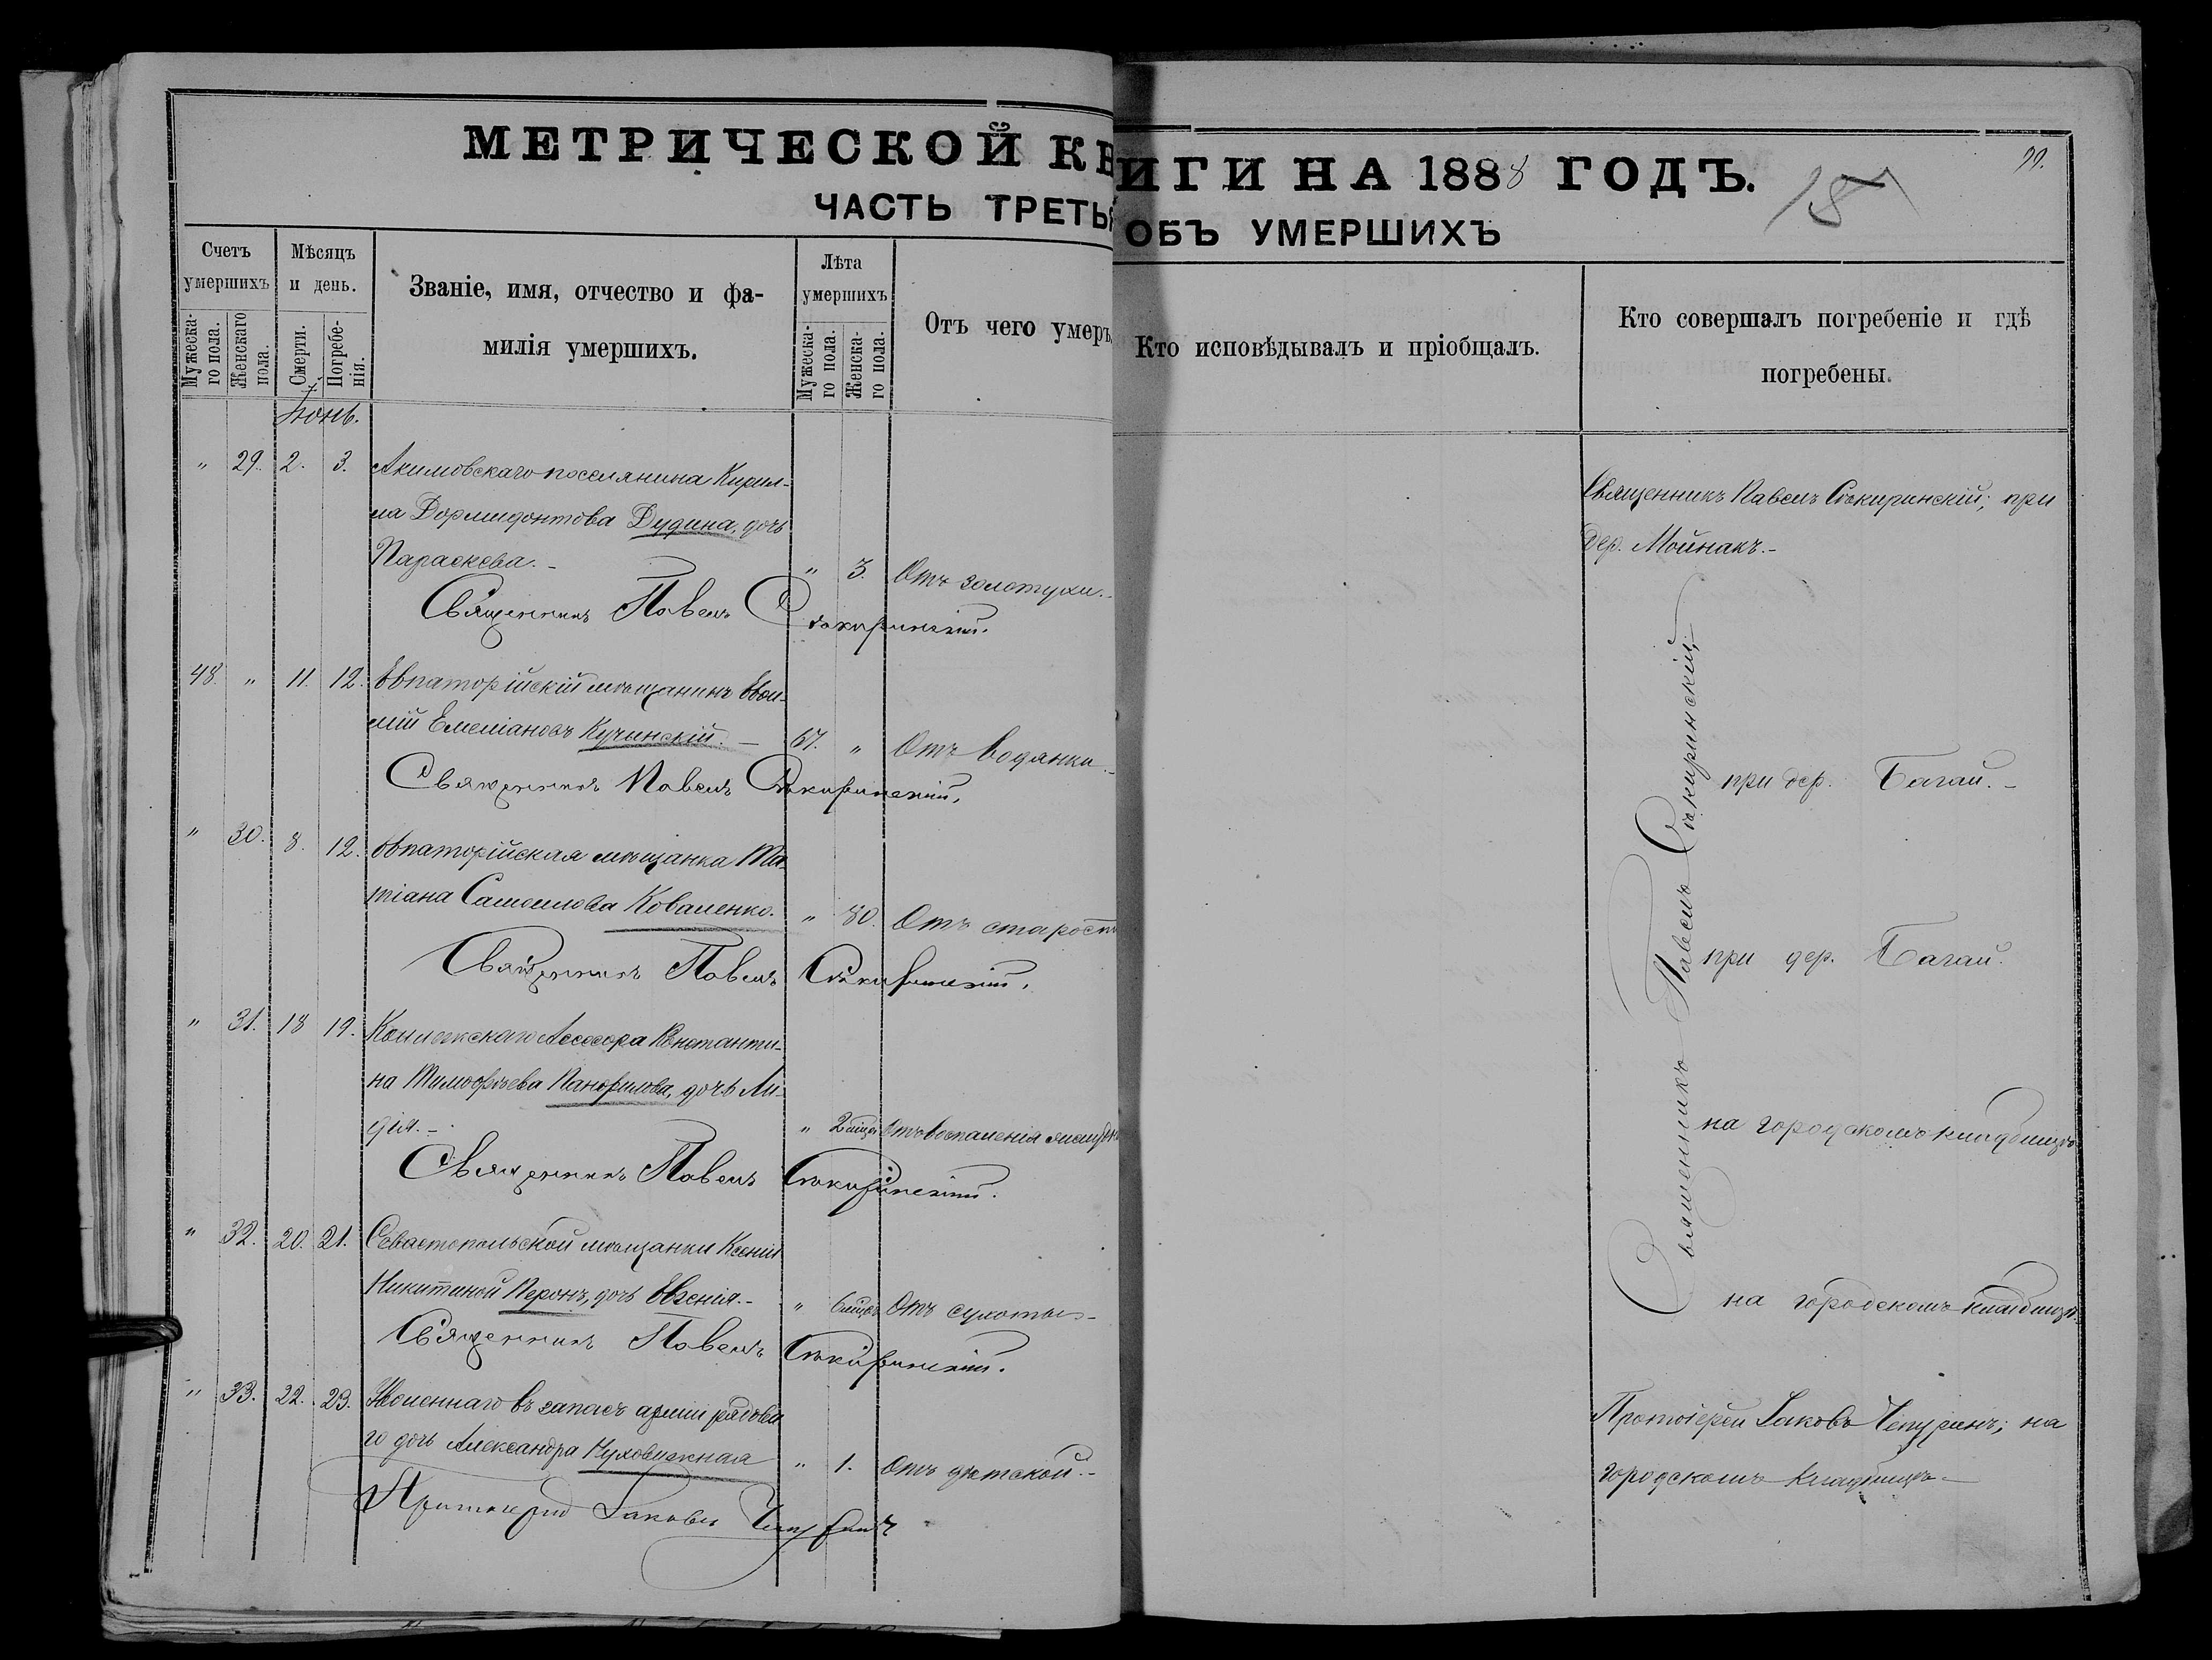 МЕТРИЧЕСКОЙ КНИГИ НА 1888 ГОДЪ.
99.
ЧАСТЬ ТРЕТЬЯ ОБЪ УМЕРШИХЪ
Счетъ умершихъ
Мужеска-го пола.
Женскаго пола.
Мѣсяцъ и день.
Смерти.
Погребе-нія.
Званіе, имя, отчество и фа-
милія умершихъ.
Лѣта умершихъ
Мужеска-го пола.
Женска-го пола.
Отъ чего умеръ
Кто исповѣдывалъ и пріобщалъ.
Кто совершалъ погребеніе и гдѣ
погребены.
Іюнь.
" 29. 2. 3. Акимовскаго поселянина Кирил-
ла Дормидонтова Дудина, дочь
Параскева. - " 3. Отъ золотухи. -
Священникъ Павелъ Сѣкиринскій; при
дер. Мойнакъ. -
Священникъ Павелъ Сѣкиринскій.
48. " 11. 12. Евпаторійскій мѣщанинъ Евѳи-
мій Емеліановъ Кучинскій. - 67. " Отъ водянки. -
при дер. Багай. -
Священникъ Павелъ Сѣкиринскій.
" 30. 8. 12. Евпаторійская мѣщанка Та-
тіана Самоилова Коваленко. " 80. Отъ старости
при дер. Багай.
Священникъ Павелъ Сѣкиринскій.
" 31. 18 19. Коллежскаго Ассесора Константи-
на Тимоѳеева Панфилова, дочь Ли-
дія. - " 2 мѣся. Отъ воспаленія
на городскомъ кладбищѣ
Священникъ Павелъ Сѣкиринскій.
" 32. 20. 21. Севастопольской мѣщанки Ксеніи
Никитиной Перонъ, дочь Евгенія. - " 6 мѣся. Отъ сухоты -
на городскомъ кладбищѣ.
Священникъ Павелъ Сѣкиринскій.
Священникъ Павелъ Сѣкиринскій;
" 33. 22. 23. Уволеннаго въ запасъ арміи рядова
го дочь Александра " 1. Отъ дѣтской. -
Протоіерей Іаковъ Чепуринъ; на
городскомъ кладбищѣ -
Протоіерей Іаковъ Чепуринъ